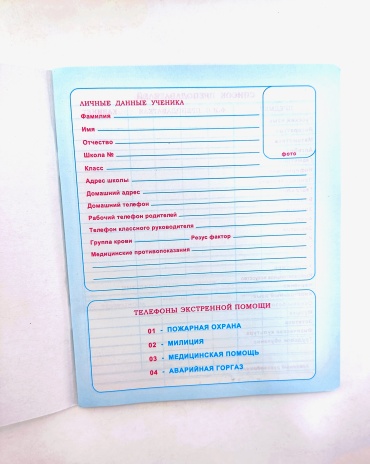 ЛИЧНЫЕ ДАННЫЕ УЧЕНИКА
Фамилия
Имя
Отчество
Школа №
Класс
фото
Адрес школы
Домашний адрес
Домашний телефон
Рабочий телефон родителей
Телефон классного руководителя
Группа крови Резус фактор
Медицинские противопоказания
ТЕЛЕФОНЫ ЭКСТРЕННОЙ ПОМОЩИ
01 - ПОЖАРНАЯ ОХРАНА
02 - МИЛИЦИЯ
03 - МЕДИЦИНСКАЯ ПОМОЩЬ
04 - АВАРИЙНАЯ ГОРГАЗ